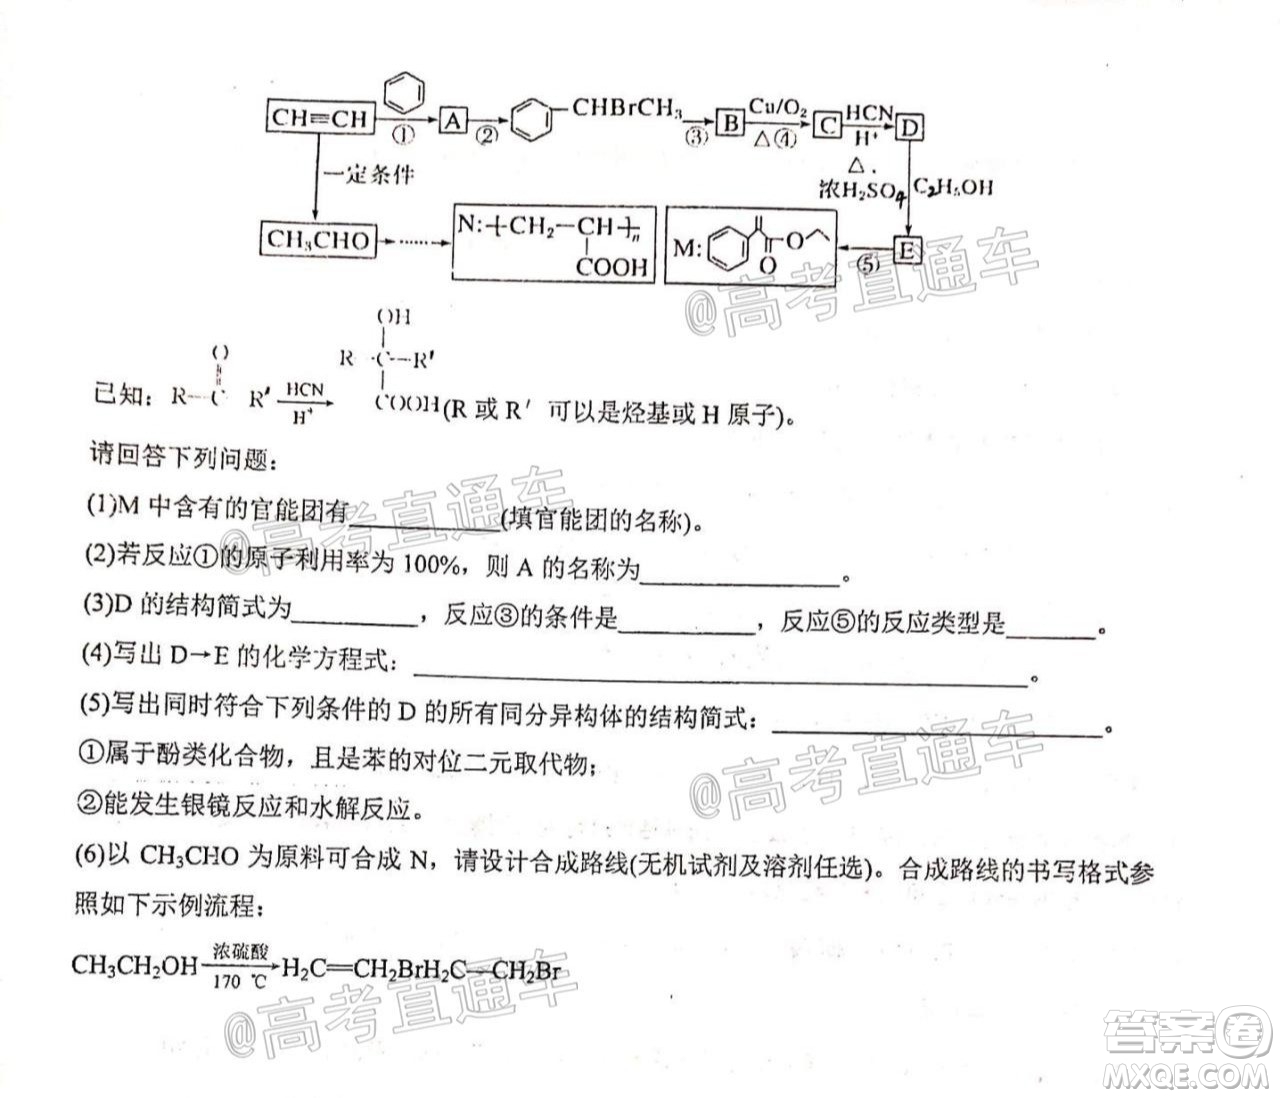 CH≡CH ① A ② CHBrCH₃ ③ B Cu/O₂ △④ C HCN H⁺ D
一定条件
△
浓H₂SO₄ C₂H₅OH
CH₃CHO ······ N: ─[CH₂─CH]─ₙ COOH M: O O ⑤ E
已知: R─C R′ O HCN H⁺ OH R─C─R′ COOH(R 或 R′ 可以是烃基或 H 原子)。
请回答下列问题:
(1)M 中含有的官能团有____________(填官能团的名称)。
(2)若反应①的原子利用率为 100%，则 A 的名称为________________。
(3)D 的结构简式为__________，反应③的条件是___________，反应⑤的反应类型是_______。
(4)写出 D→E 的化学方程式: ________________________________________________。
(5)写出同时符合下列条件的 D 的所有同分异构体的结构简式: __________________________。
①属于酚类化合物，且是苯的对位二元取代物;
②能发生银镜反应和水解反应。
(6)以 CH₃CHO 为原料可合成 N，请设计合成路线(无机试剂及溶剂任选)。合成路线的书写格式参
照如下示例流程:
CH₃CH₂OH 浓硫酸 170 ℃ H₂C═CH₂BrH₂C─CH₂Br
@高考直通车
@高考直通车
@高考直通车
@高考直通车
答案圈
MXQE.COM